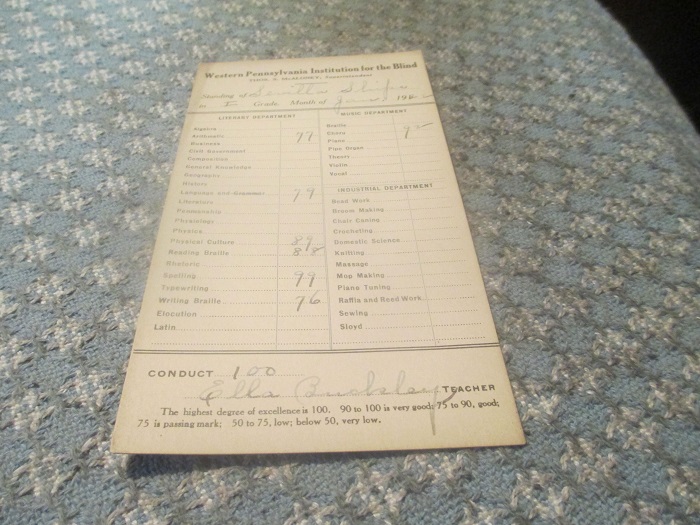 Western Pennsylvania Institution for the Blind
THOS. S. McALONEY, Superintendent
Standing of
in Grade. Month of Jan. 19
LITERARY DEPARTMENT
Algebra
Arithmetic 77
Business
Civil Government
Composition
General Knowledge
Geography
History
Language and Grammar 79
Literature
Penmanship
Physiology
Physics
Physical Culture 89
Reading Braille 88
Rhetoric
Spelling 99
Typewriting
Writing Braille 76
Elocution
Latin
MUSIC DEPARTMENT
Braille
Chorus
Piano
Pipe Organ
Theory
Violin
Vocal
INDUSTRIAL DEPARTMENT
Bead Work
Broom Making
Chair Caning
Crocheting
Domestic Science
Knitting
Massage
Mop Making
Piano Tuning
Raffia and Reed Work
Sewing
Sloyd
CONDUCT 100
Ella Buckley TEACHER
The highest degree of excellence is 100. 90 to 100 is very good; 75 to 90, good;
75 is passing mark; 50 to 75, low; below 50, very low.